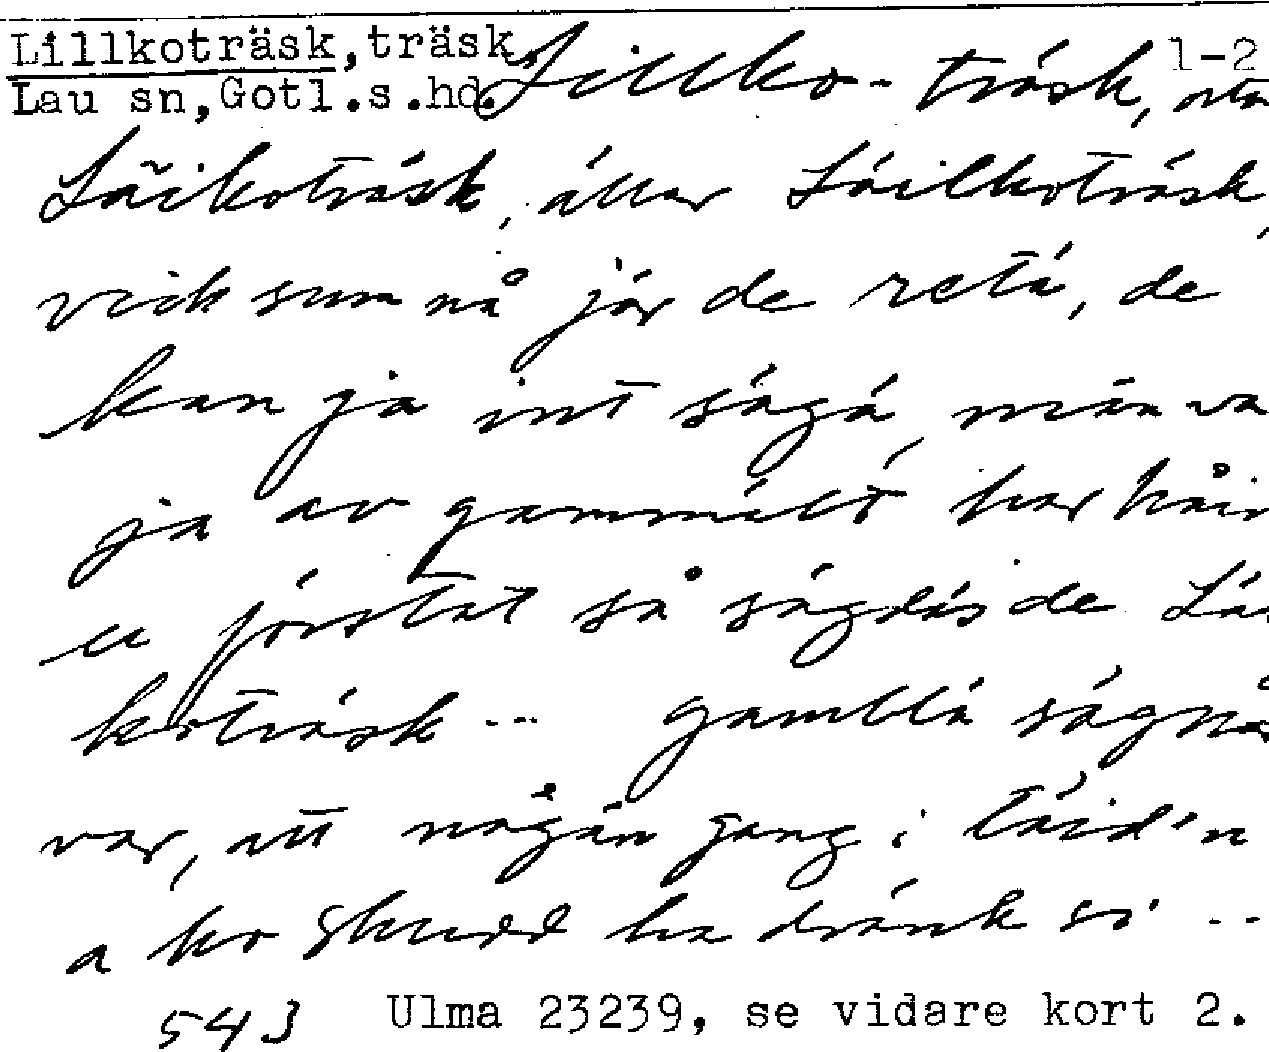 Lillkoträsk, träsk, Lillko-träsk, 1-2
Lau sn, Gotl.s.hd.
Läikoträsk, äller Läilkoträsk,
vick sum nå jär de retä, de
kan ja int sägä, män va
ja av gammält har
u förstat så sägdäs de
koträsk --- gamblä
var, att någän gang i täid'n
a ko skudd ha dränk si --
543 Ulma 23239, se vidare kort 2.